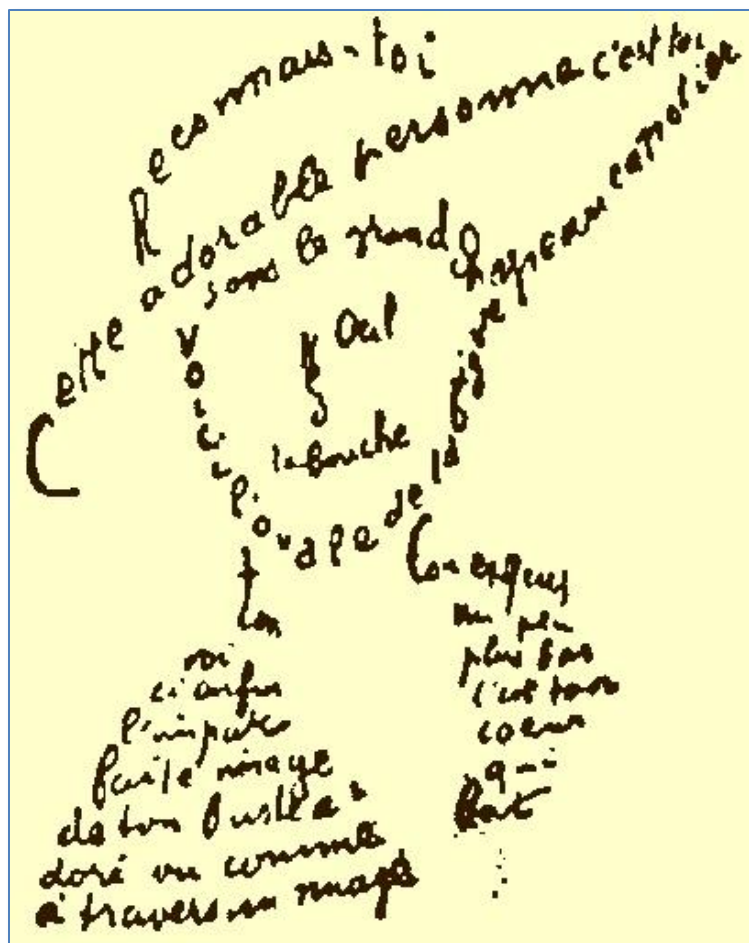 Reconnais-toi
Cette adorable personne c'est toi
sous le grand chapeau canotier
Oeil
Nez
la bouche
Voici l'ovale de la figure
ton
Cou exquis
voi
ci enfin
l'impar
faite image
de ton buste a
doré vu comme
à travers un nuage
un peu
plus bas
c'est ton
coeur
qui
bat